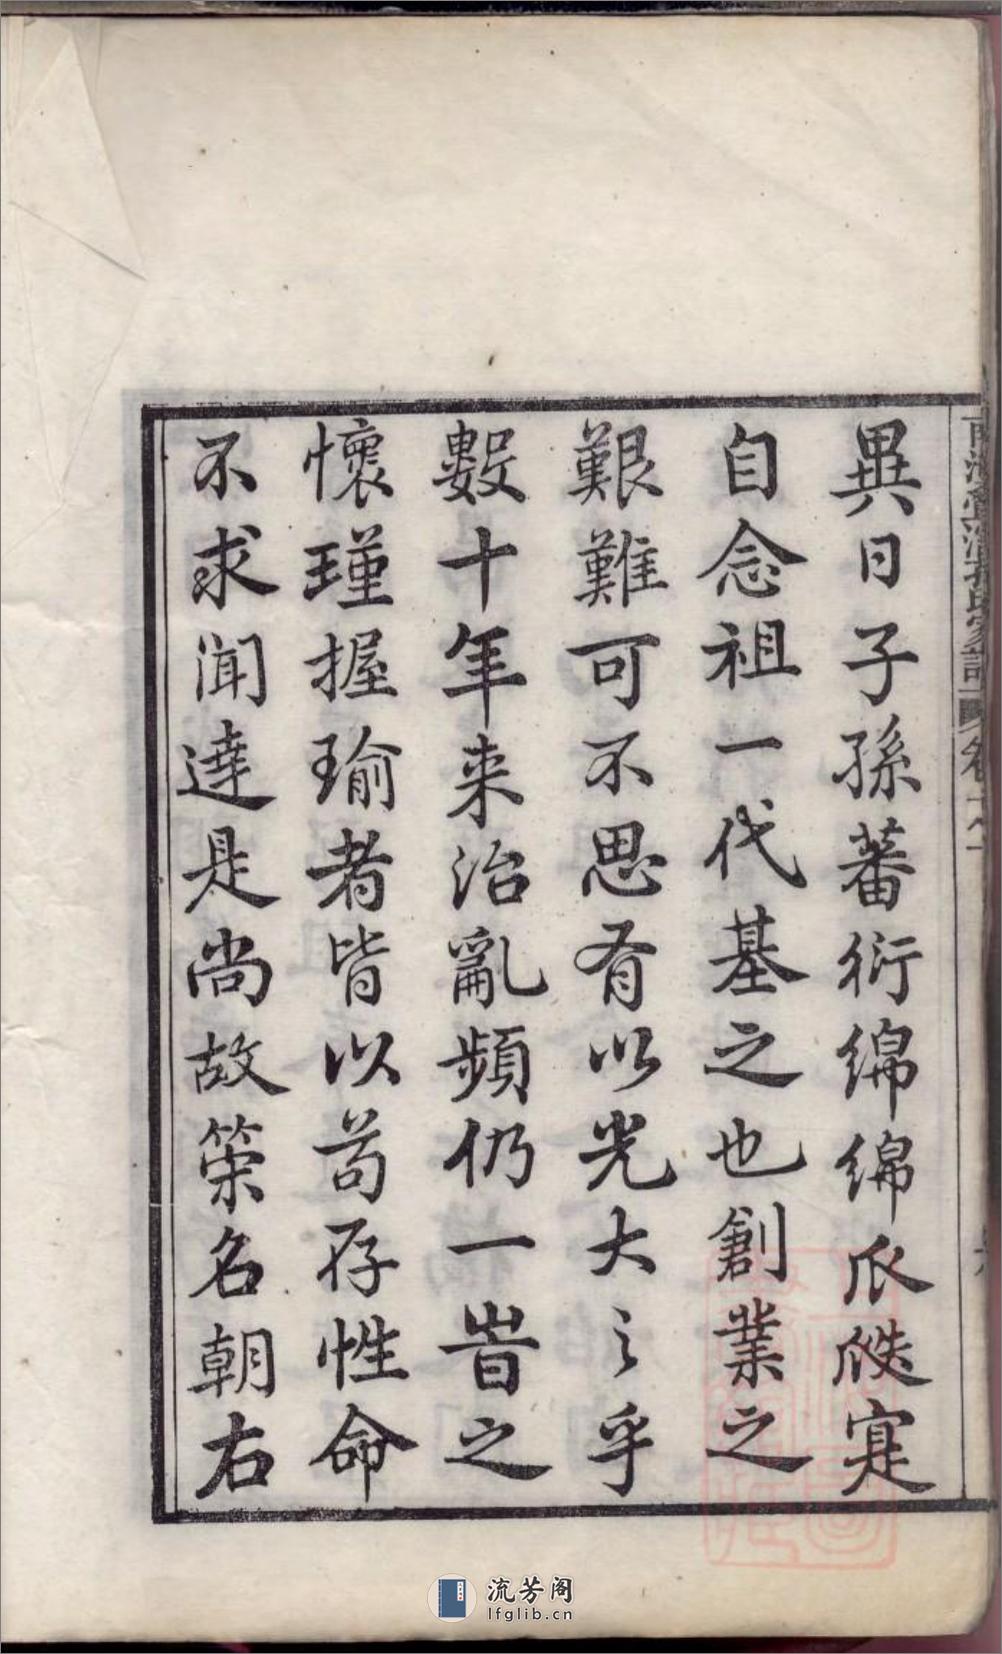 異日子孫蕃衍綿綿瓜瓞寔
自念祖一代基之也創業之
艱難可不思有以光大之乎
數十年來治亂頻仍一旹之
懷瑾握瑜者皆以苟存性命
不求聞達是尚故策名朝右
流芳阁
lfglib.cn